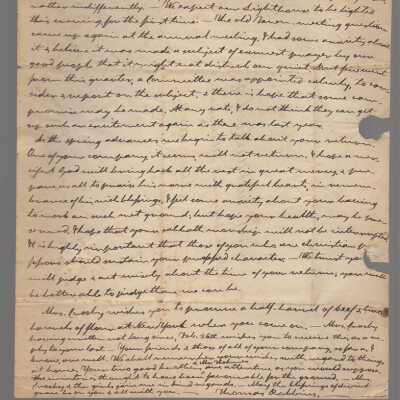 rather indifferently. — We expect our Lighthouse to be lighted
this evening for the first time. — The old Baron meeting question
came up again at the annual meeting, I had some anxiety about
it, & believe it was made a subject of earnest prayer by our
good people that it might not disturb our quiet.
pears this quarter, a Committee was appointed to con-
sider & report on the subject, & there is hope that some com-
promise may be made. At any rate, I do not think they can get
up such an excitement again as there was last year.
As the spring advances we begin to talk about your return.
One of your company it seems will not return, I hope a mer-
ciful God will bring back all the rest in great mercy, & pre-
pare us all to praise his name with grateful hearts, in remem-
brance of his rich blessings, I feel some anxiety about your having
to work on such wet ground, but hope your health may be pre-
served. I hope that your sabbath worship will not be interrupted
It is highly important that those of you who are christian pro-
fessors should sustain your professed character. — We trust you
will judge & act wisely about the time of your return, you will
be better able to judge than we can be.
Mrs. wishes you to procure a half barrel of beef & two
barrels of flour at New York when you come on. — Mrs.
having written not long since, Feb. wishes you to receive this as a re-
ply to your last. Your friends & those of all of your company, as far as I
know, are well. We shall remember your wishes with regard to things
at home. Your two good brothers are attentive as you would suppose,
the
& the girls join me in kind regards. — May the blessings of divine
grace be on you & all with you. Thomas Robbins.